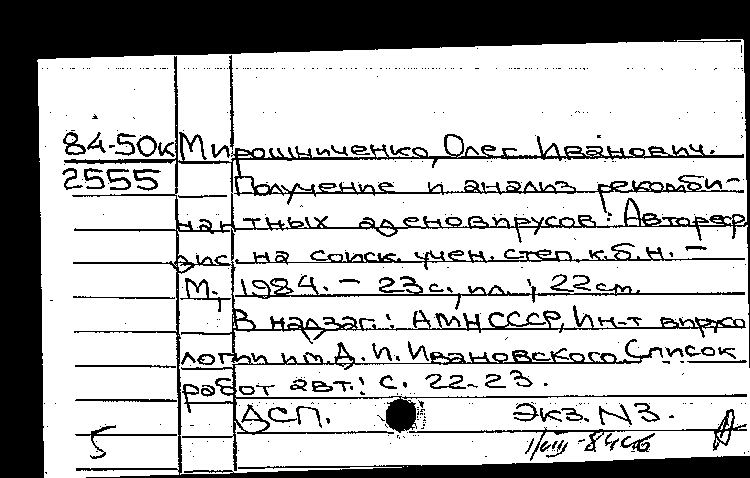 84-50к Мирошниченко, Олег Иванович.
2555 Получение и анализ рекомби-
нантных аденовирусов: Автореф.
дис. на соиск. учен. степ. к.б.н. –
М., 1984. – 23 с., ил. ; 22 см.
В надзаг.: АМН СССР, Ин-т вирусо
логии им. Д. И. Ивановского. Список
работ авт.: с. 22-23.
ДСП. Экз. N3.
5